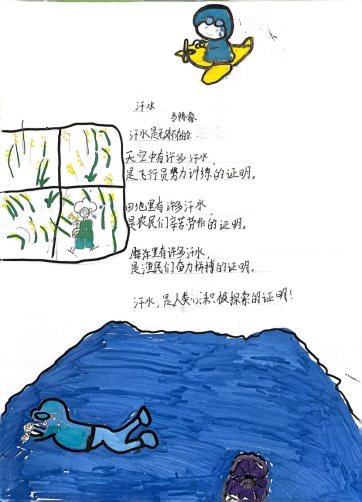 汗水
汗水是无处不在的
天空中有许多汗水，
是飞行员努力训练的证明。
田地里有许多汗水，
是农民们辛苦劳作的证明。
海洋里有许多汗水，
是渔民们奋力拼搏的证明。
汗水，是人类积极探索的证明！